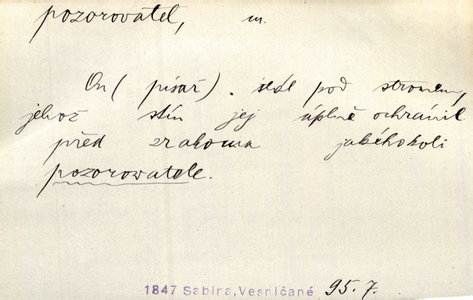 pozorovatel, m.
On (písař) . sedl pod stromem,
jehož stín jej úplně ochránil
před zrakoma jakéhokoli
pozorovatele.
1847 Sabina, Vesničané 95.7.